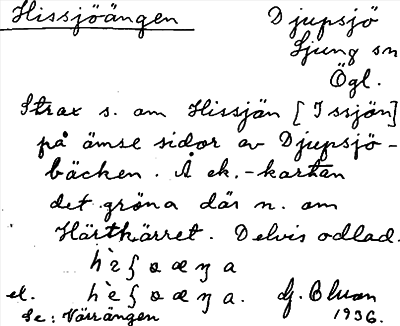 Hissjöängen
Djupsjö
Ljung sn
Ögl.
Strax s. om Hissjön [Issjön]
på ömse sidor av Djupsjö-
bäcken. Å ek.-kartan
det gröna där n. om
Härtkärret. Delvis odlad.
el.
Se: Värrängen
1936.